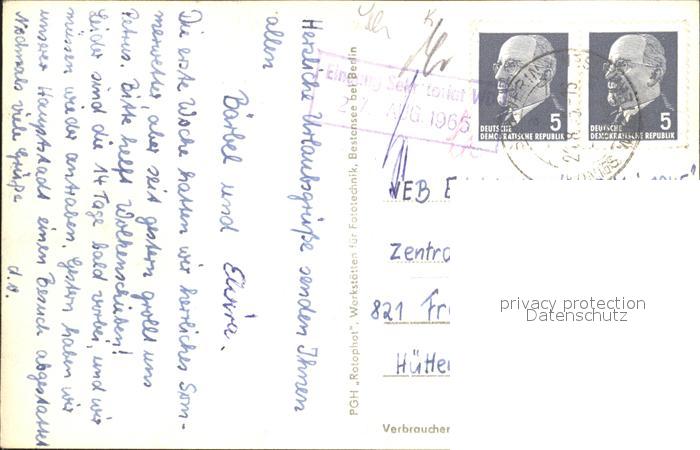 Herzliche Urlaubsgrüße senden Ihnen
allen
Bärbel und Elvira.
Die erste Woche hatten wir herrliches Som-
merwetter, aber seit gestern grollt uns
Petrus. Bitte helft Wolkenschieben!
Leider sind die 14 Tage bald vorbei, und wir
müssen wieder antraben. Gestern haben wir
unserer Hauptstadt einen Besuch abgestattet
Nochmals viele Grüße
d. O.
PGH „Rotophot“, Werkstätten für Fototechnik, Bestensee bei Berlin
Eingang Sekretariat
27. AUG. 1965
DEUTSCHE
DEMOKRATISCHE REPUBLIK
5
DEUTSCHE
DEMOKRATISCHE REPUBLIK
5
VEB E
Zentra
821 Fr
Hütte
Verbraucher
privacy protection
Datenschutz